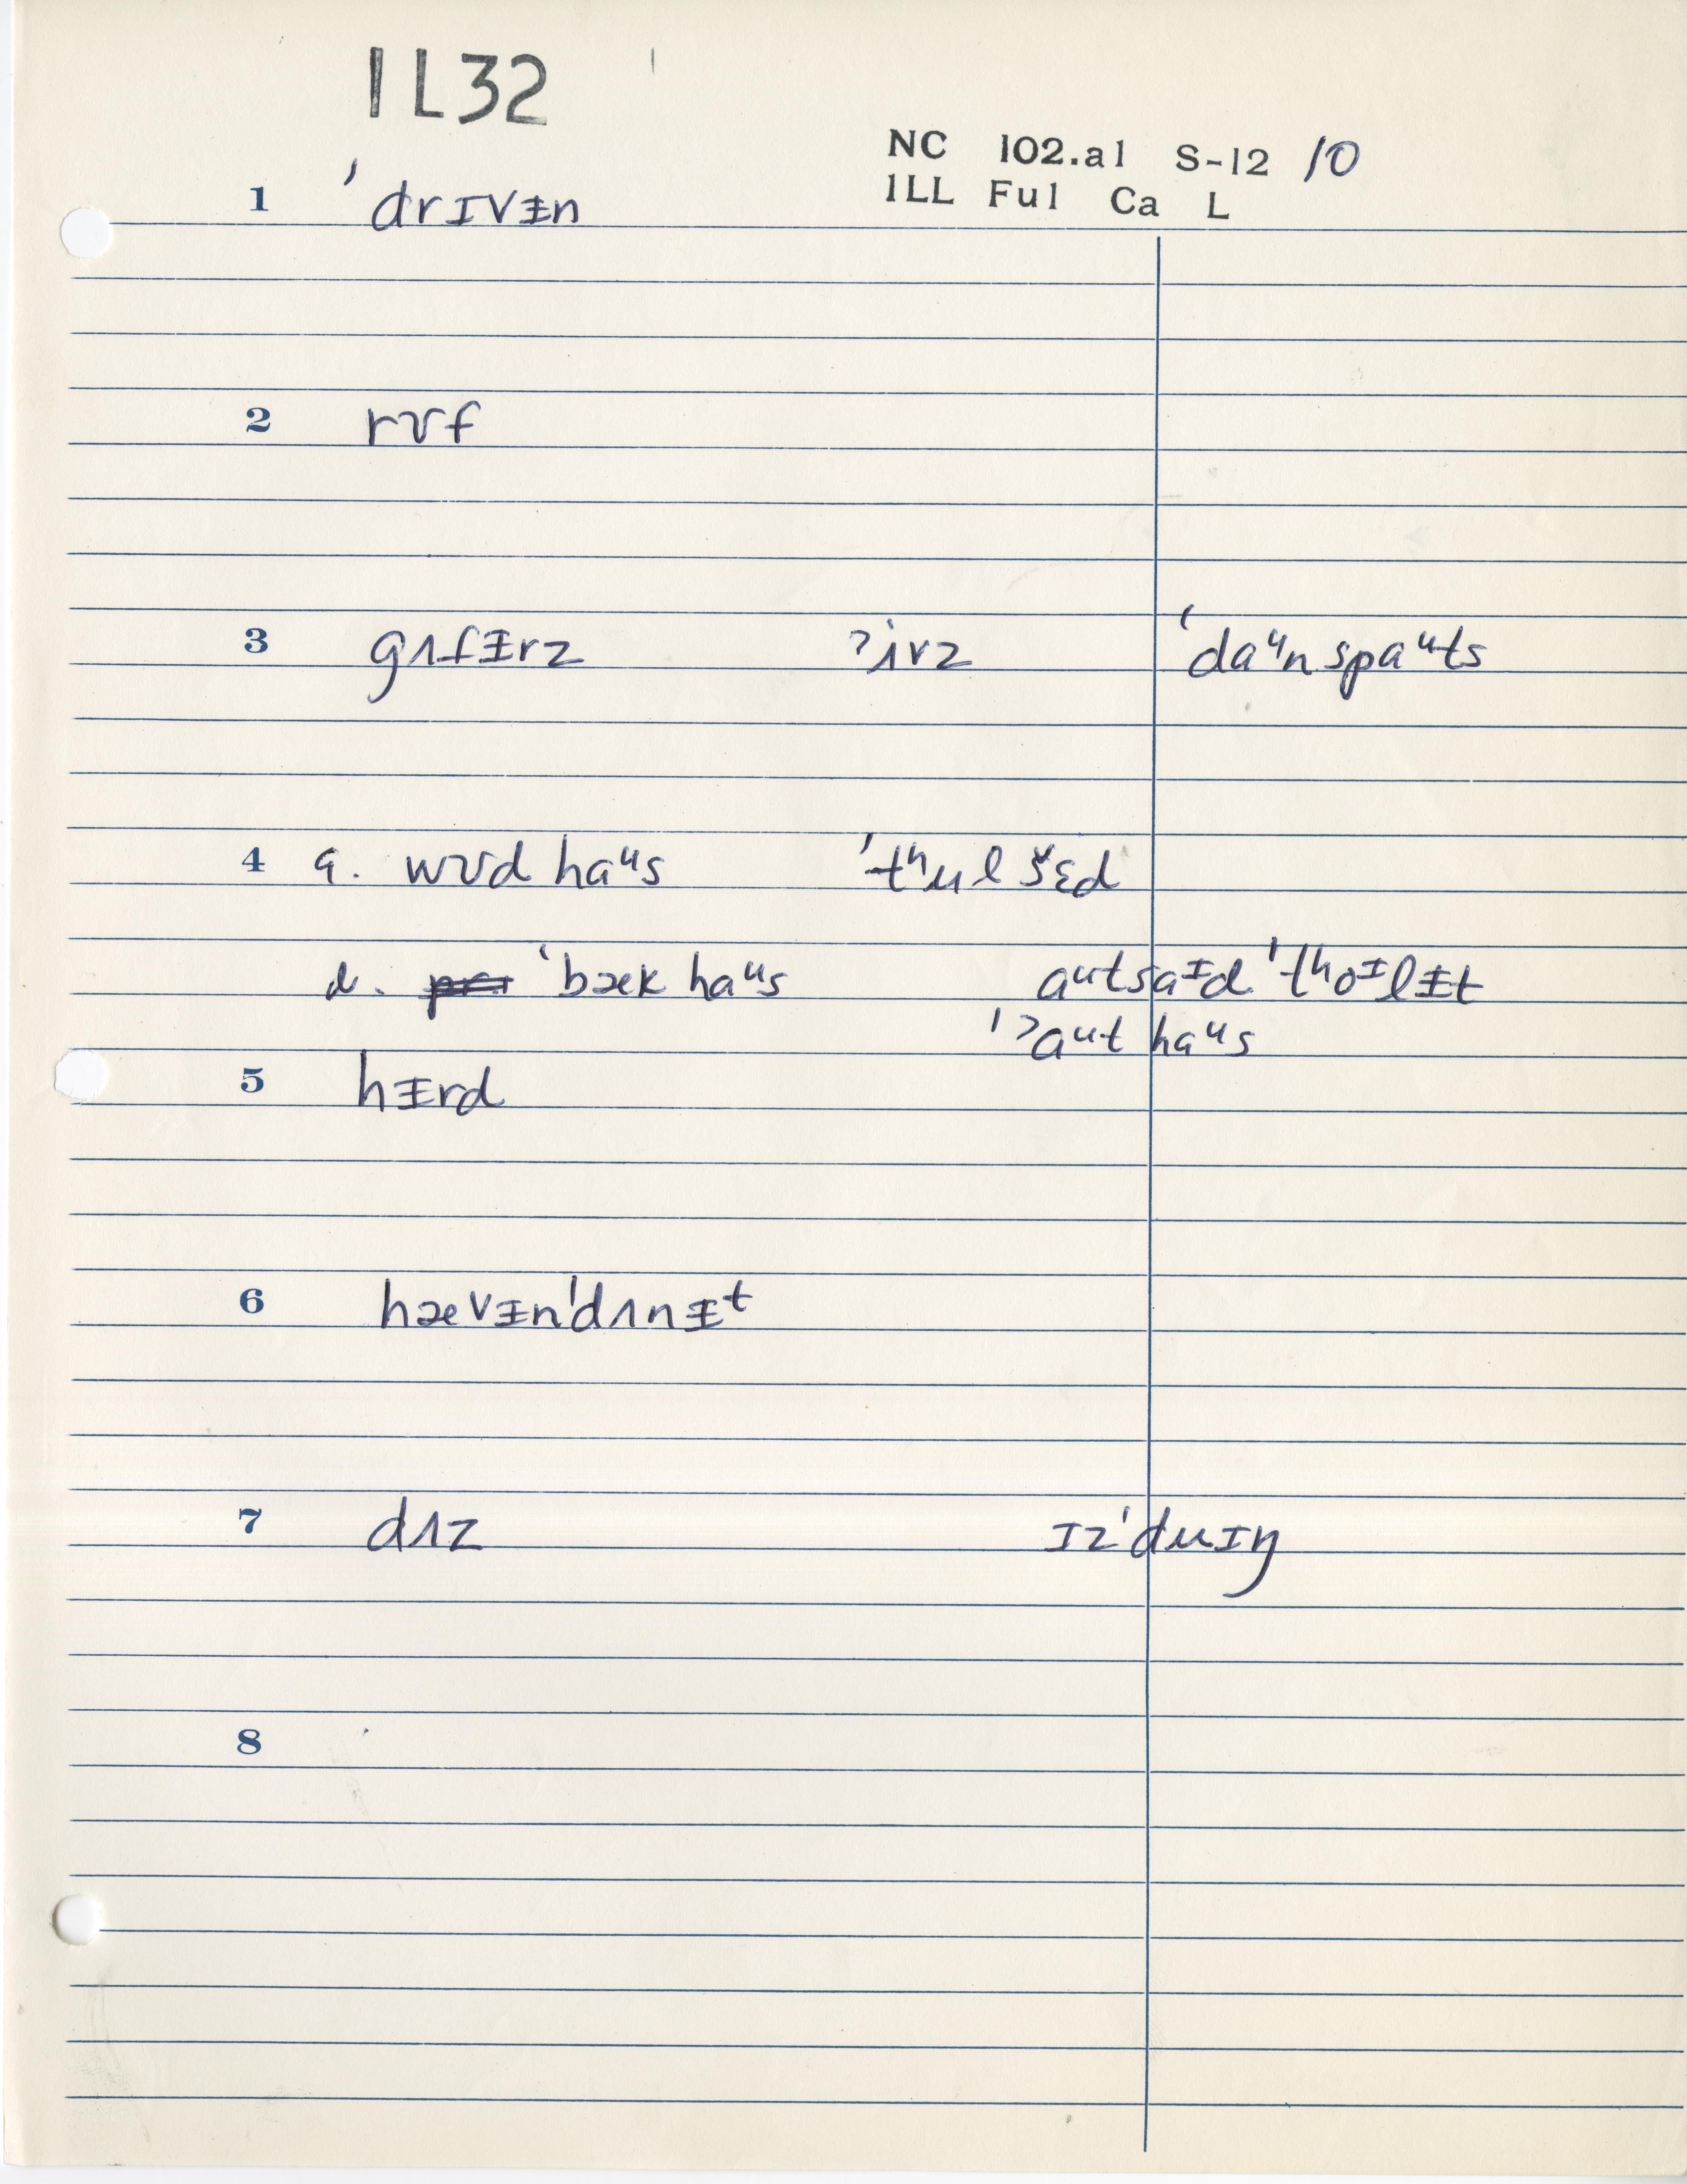 IL32
NC 102.a1 S-12 10
ILL Ful Ca L
1 ˈdrɪvᵻn
2 rʊf
3 gʌfᵻrz ʔivz ˈdaᵘnspaᵘts
4 a. wʊd haᵘs ˈtʰul šɛd
b. ˈbæk haᵘs aᵘtsaᶦd ˈtʰoᶦlᵻt
ˈʔaᵘt haᵘs
5 hᵻrd
6 hævᵻnˈdʌnᵻt
7 dʌz ɪzˈduɪŋ
8